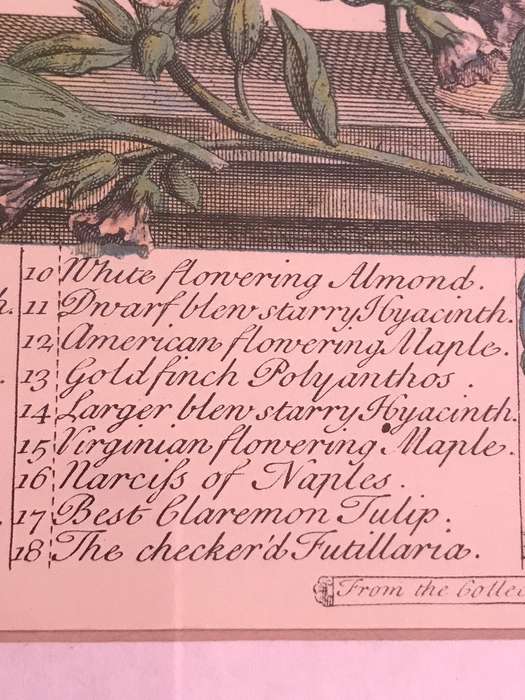 10 White flowering Almond.
h. 11 Dwarf blew starry Hyacinth.
12 American flowering Maple.
13 Goldfinch Polyanthos.
14 Larger blew starry Hyacinth.
15 Virginian flowering Maple.
16 Narciſs of Naples.
17 Best Claremon Tulip.
18 The checker'd Futillaria.
From the Collec